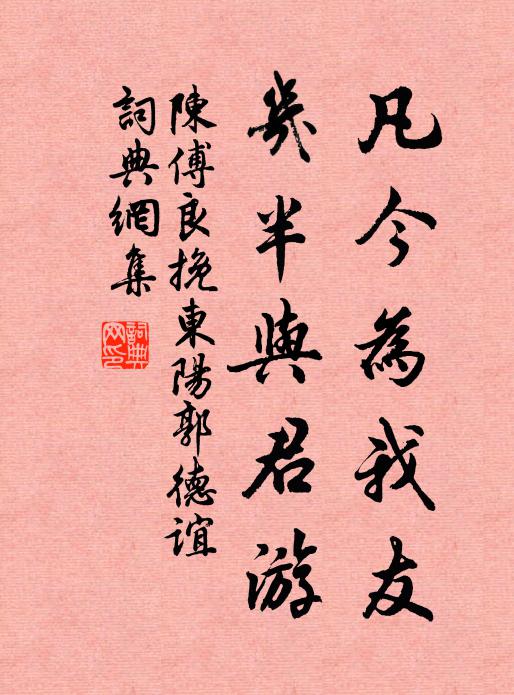 凡今為我友
幾半與君游
陳傅良挽東陽郭德誼
詞典網集
詞典網印